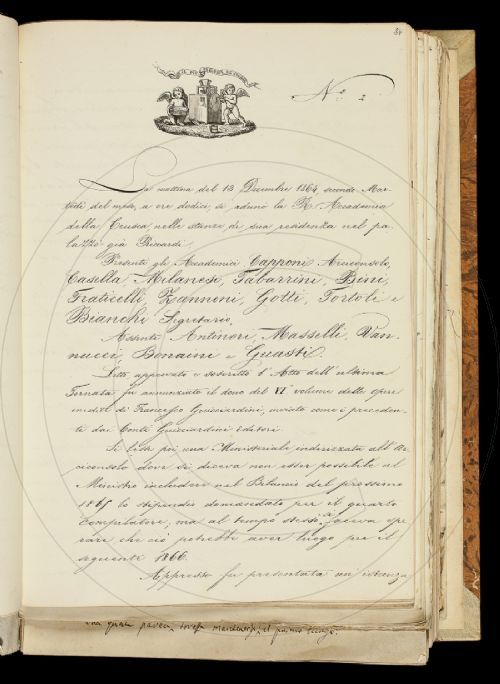 84
IL PIÙ BEL FIOR NE COGLIE
N.º 2.
La mattina del 13 Dicembre 1864, secondo Mar-
tedì del mese, a ore dodici si adunò la R. Accademia
della Crusca nelle stanze di sua residenza nel pa-
lazzo già Riccardi.
Presenti gli Accademici Capponi Arciconsolo,
Casella, Milanesi, Tabarrini, Bini,
Fraticelli, Zannoni, Gotti, Tortoli e
Bianchi Segretario.
Assenti Antinori, Masselli, Van-
nucci, Bonaini e Guasti.
Letto approvato e soscritto l'Atto dell'ultima
Tornata fu annunziato il dono del VI.º volume delle opere
inedite di Francesco Guicciardini, inviato come i preceden-
ti dai Conti Guicciardini editori.
Si lesse poi una Ministeriale indirizzata all'Ar-
ciconsolo dove si diceva non esser possibile al
Ministro includere nel Bilancio del prossimo
1865 lo stipendio domandato per il quarto
Compilatore, ma al tempo stesso faceva spe
rare che ciò potrebbe aver luogo per il
seguente 1866.
Appresso fu presentata un'istanza